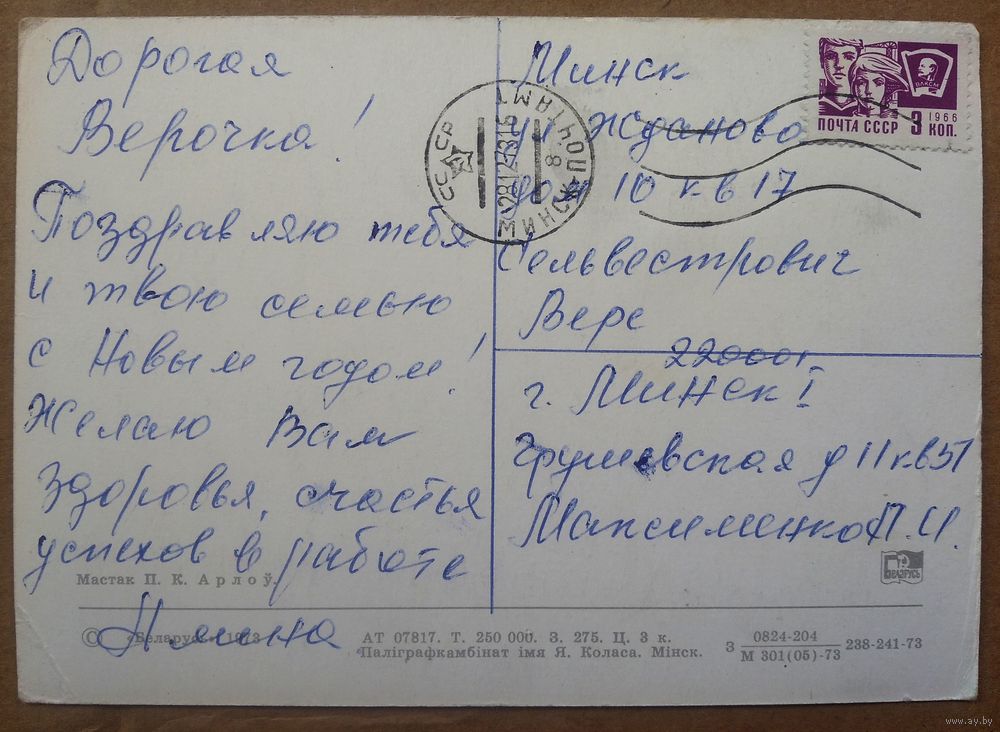 Дорогая
Верочка!
Поздравляю тебя
и твою семью
с Новым годом!
Желаю Вам
здоровья, счастья
успехов в работе
Минск
ул Жданова
дом 10 кв 17
Сельвестрович
Вере
220001
г. Минск I
Грушевская д 11 кв 51
Максименко Л. И.
ПОЧТА СССР 3 КОП.
1966
ВЛКСМ
СССР
МИНСК
ПОЧТАМТ
8
Мастак П. К. Арлоў.
БЕЛАРУСЬ
© «Беларусь» 1973
АТ 07817. Т. 250 000. З. 275. Ц. 3 к.
Паліграфкамбінат імя Я. Коласа. Мінск.
З 0824-204
М 301(05)-73
238-241-73
www.ay.by